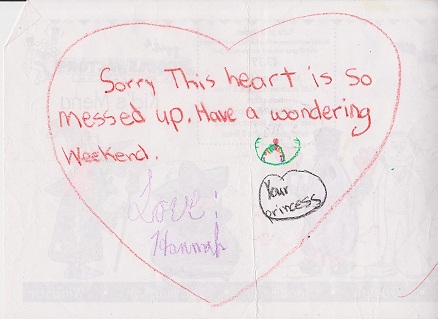 Sorry This heart is so
messed up. Have a wondering
Weekend.
Love!
Hannah
Your
princess